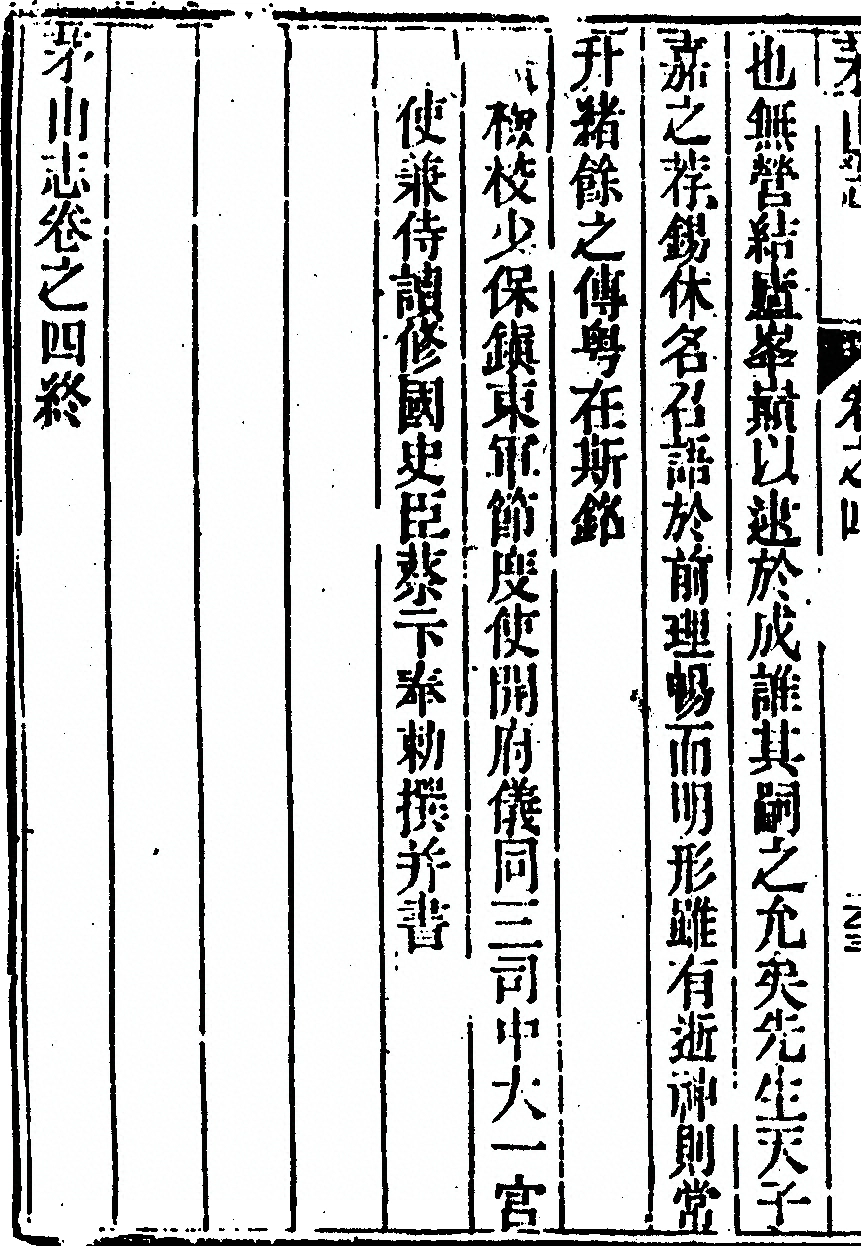 茅山志 卷之四
也無營結廬峯巔以迷於成誰其嗣之允矣先生天子
嘉之荐錫休名召語於前理暢而明形雖有逝神則常
升緒餘之傳粤在斯銘
檢校少保鎮東軍節度使開府儀同三司中太一宮
使兼侍讀修國史臣蔡卞奉勅撰并書
茅山志卷之四終